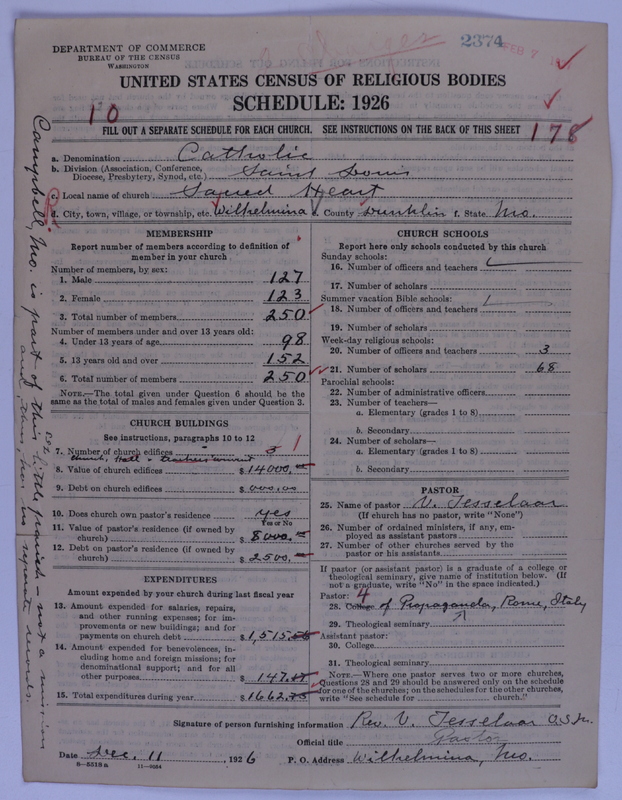 2374 FEB 7
DEPARTMENT OF COMMERCE
BUREAU OF THE CENSUS
WASHINGTON
UNITED STATES CENSUS OF RELIGIOUS BODIES
SCHEDULE: 1926
10
FILL OUT A SEPARATE SCHEDULE FOR EACH CHURCH. SEE INSTRUCTIONS ON THE BACK OF THIS SHEET
178
a. Denomination Catholic
b. Division (Association, Conference, Diocese, Presbytery, Synod, etc.) Saint Louis
c. Local name of church Sacred Heart
d. City, town, village, or township, etc. Wilhelmina e. County Dunklin f. State Mo.
MEMBERSHIP
Report number of members according to definition of
member in your church
Number of members, by sex:
1. Male 127
2. Female 123
3. Total number of members 250
Number of members under and over 13 years old:
4. Under 13 years of age 98
5. 13 years old and over 152
6. Total number of members 250
NOTE.—The total given under Question 6 should be
same as the total of males and females given under Question 3.
CHURCH BUILDINGS
See instructions, paragraphs 10 to 12
7. Number of church edifices 3 1
Church, Hall &
8. Value of church edifices $ 14000.
9. Debt on church edifices $ 000.00
10. Does church own pastor's residence yes
Yes or No
11. Value of pastor's residence (if owned by
church) $ 8000.
12. Debt on pastor's residence (if owned by
church) $ 2500.
EXPENDITURES
Amount expended by your church during last fiscal year
13. Amount expended for salaries, repairs,
and other running expenses; for im-
provements or new buildings; and for
payments on church debt $ 1,515.
14. Amount expended for benevolences, in-
cluding home and foreign missions; for
denominational support; and for all
other purposes $ 147.
15. Total expenditures during year $ 1662.
CHURCH SCHOOLS
Report here only schools conducted by this church
Sunday schools:
16. Number of officers and teachers
17. Number of scholars
Summer vacation Bible schools:
18. Number of officers and teachers
19. Number of scholars
Week-day religious schools:
20. Number of officers and teachers 3
21. Number of scholars 68
Parochial schools:
22. Number of administrative officers
23. Number of teachers—
a. Elementary (grades 1 to 8)
b. Secondary
24. Number of scholars—
a. Elementary (grades 1 to 8)
b. Secondary
PASTOR
25. Name of pastor V. Tesselaar
(If church has no pastor, write "None")
26. Number of ordained ministers, if any, em-
ployed as assistant pastors
27. Number of other churches served by the
pastor or his assistants
If pastor (or assistant pastor) is a graduate of a college or
theological seminary, give name of institution below. (If
not a graduate, write "No" in the space indicated.)
Pastor: 4
28. College of Propaganda, Rome, Italy
29. Theological seminary
Assistant pastor:
30. College
31. Theological seminary
NOTE.—Where one pastor serves two or more churches,
Questions 28 and 29 should be answered only on the schedule
for one of the churches; on the schedules for the other churches,
write "See schedule for church."
Signature of person furnishing information Rev. V. Tesselaar
Official title Pastor
Date Dec. 11, 1926 P. O. Address Wilhelmina, Mo.
8—5518a 11—9054
Campbell, Mo. is part of this little parish - not a mission
and, thus, has no separate records.